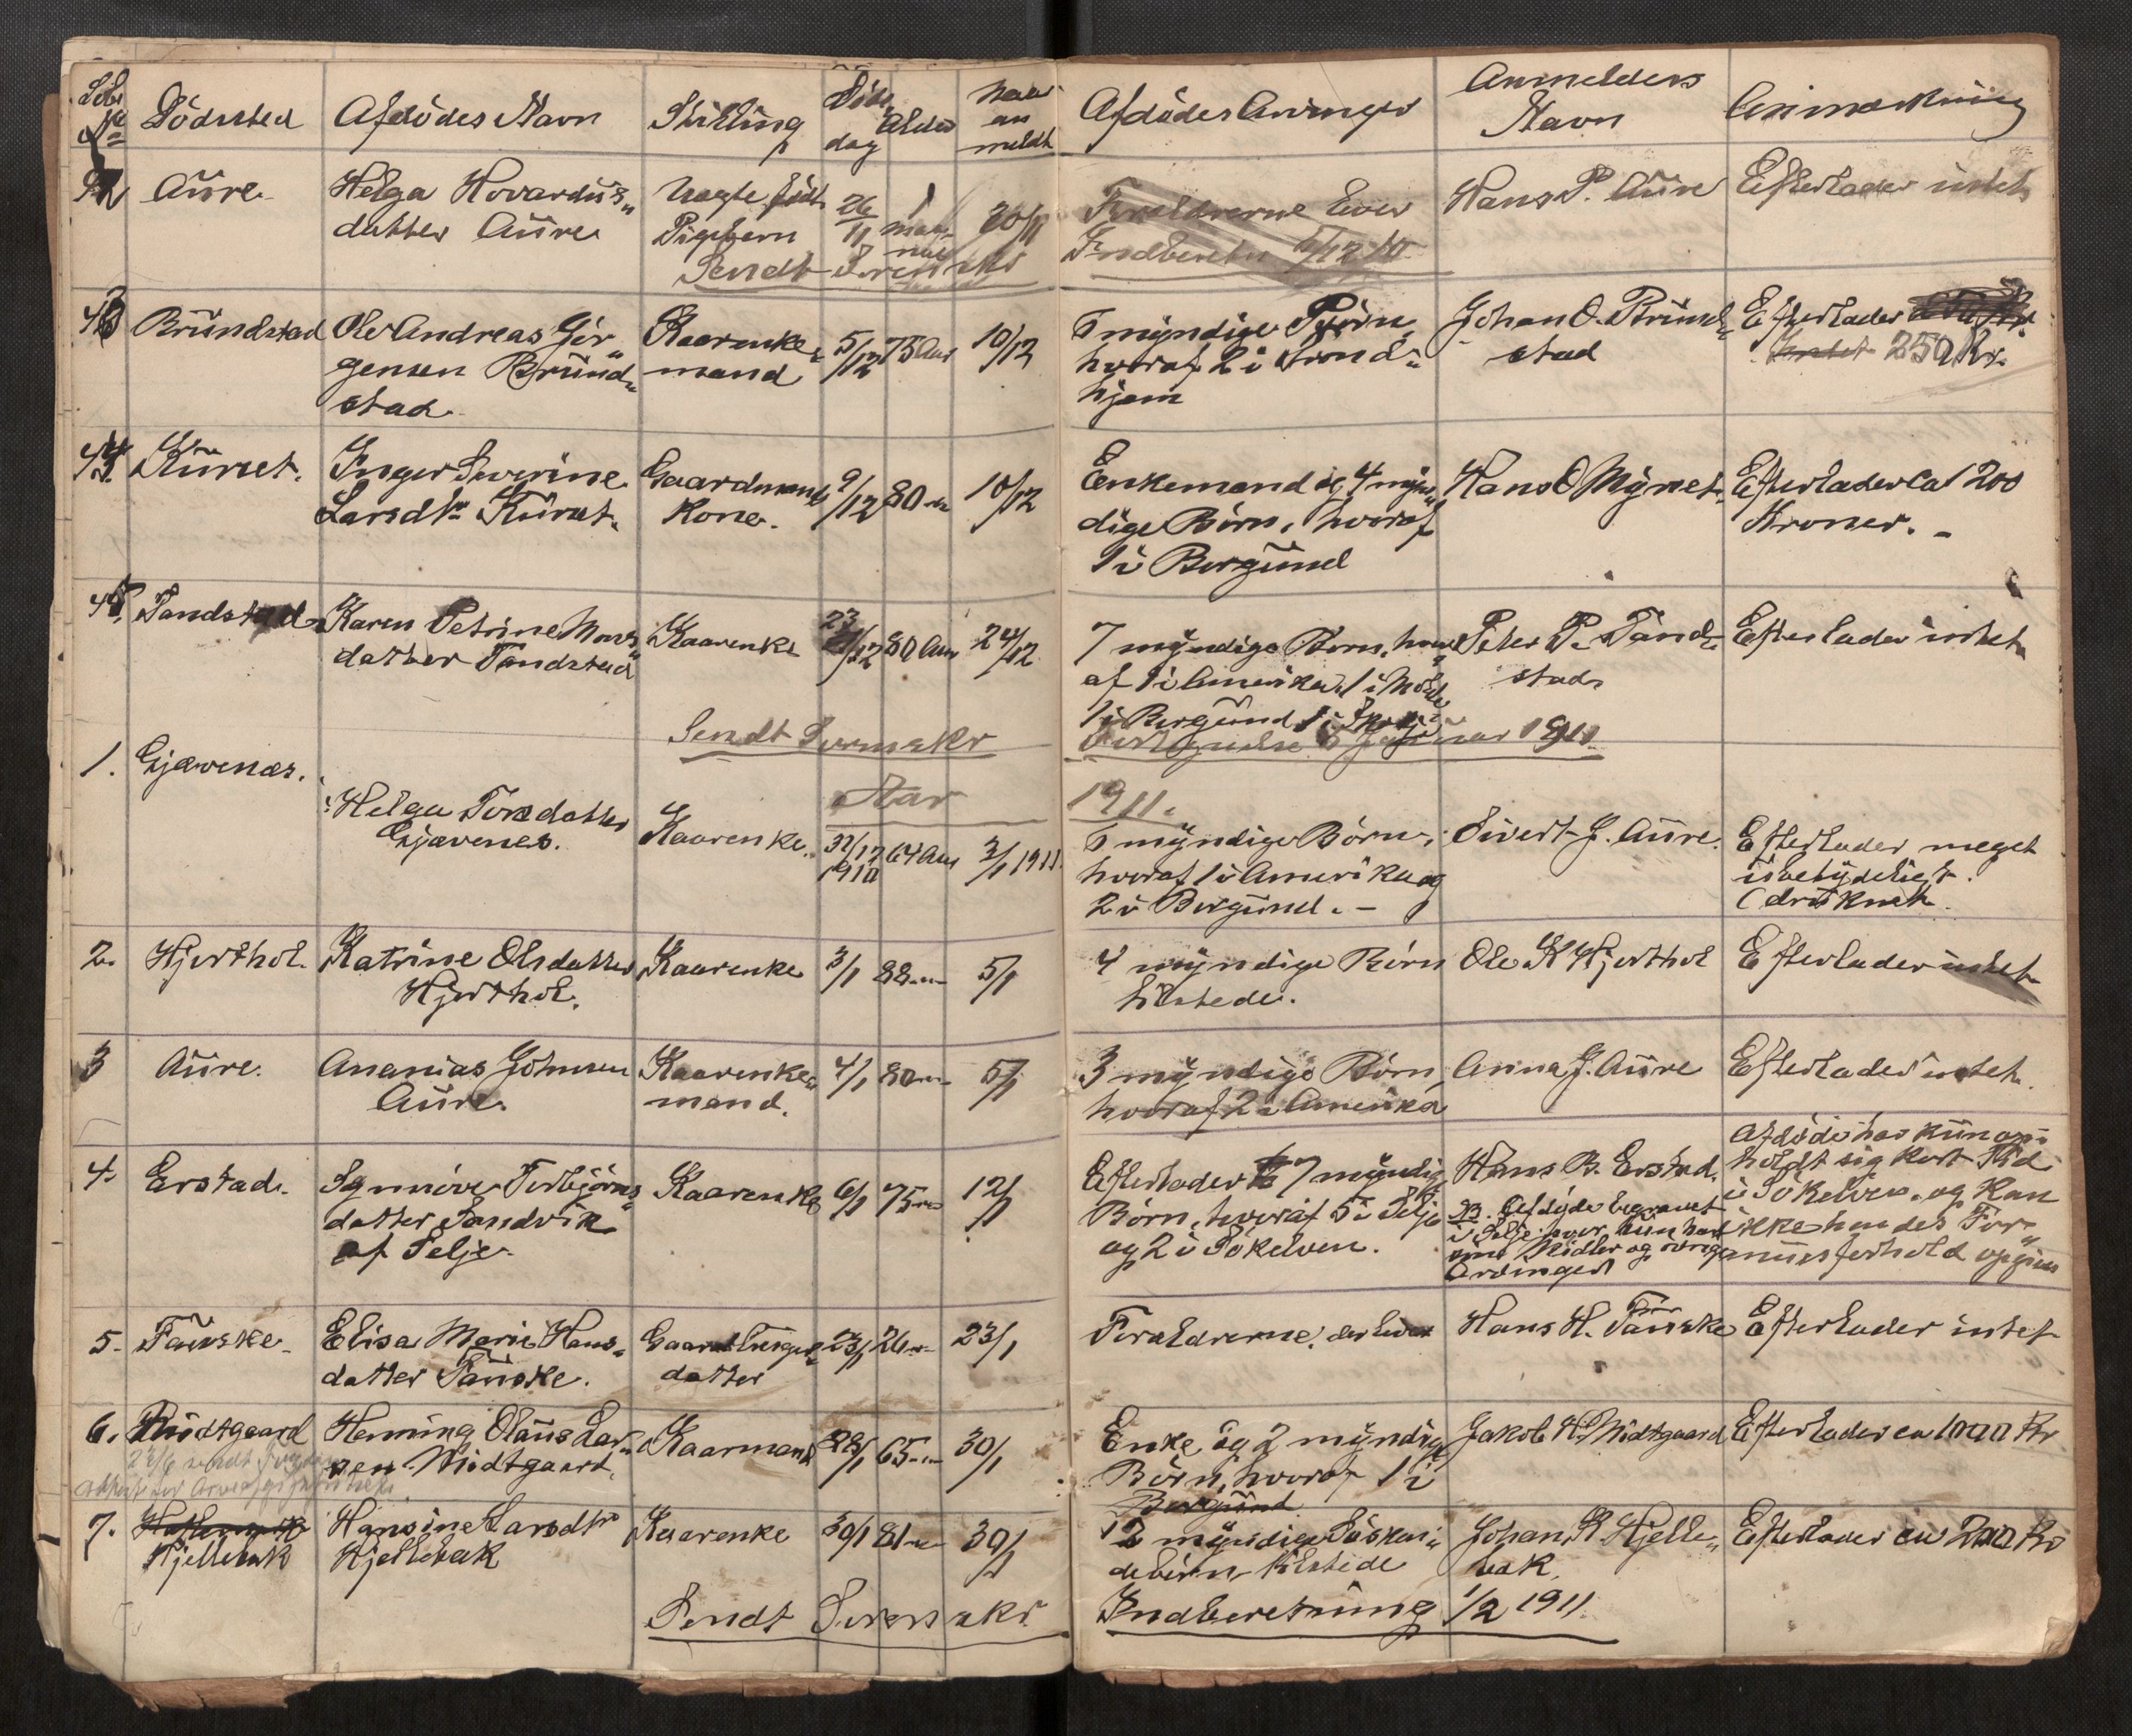 Löb
No
Dödssted
Afdödes Navn
Stilling
Döds
dag
Alder
Naar
an
meldt
Afdödes Arvinger
Anmelders
Navn
Anmærkning
42
Aure
Helga Hovards„
datter Aure
Uægte födt
Pigebarn
26/11
1
maa„
ned
30/11
Forældrerne lever
Hans P. Aure
Efterlader intet
Sendt Sorenskr
Indberetn 5/12 10.
43
Brundstad
Ole Andreas Jör„
gensen Brund„
stad
Kaarenke„
mand
5/12
75 Aar
10/12
6 myndige Börn,
hvoraf 2 i Trond„
hjem
Johan O. Brund„
stad
Efterlader
Intet 250 Kr.
44.
Kurset.
Inger Severine
Larsdtr Kurset.
Gaardmands
Kone.
9/12
80 „
10/12
Enkemand og 4 myn„
dige Börn, hvoraf
1 i Borgund
Hans O Myrset
Efterlader Ca 1200
Kroner. -
45.
Tandstad
Karen Petrine Mons„
datter Tandstad
Kaarenke
23/12
80 Aar
24/12
7 myndige Börn, hvor„
af 1 i Amerika, 1 i Molde
1 i Borgund 1 i
Peter P. Tand„
stad
Efterlader intet
Sendt Sorenskr
Januar 1911.
Aar
1911.
1.
Gjævenes.
Helga Toredatter
Gjævenes.
Kaarenke.
31/12
1910
64 Aar
2/1 1911.
5 myndige Börn,
hvoraf 1 i Amerika og
2 i Borgund. -
Sivert J. Aure.
Efterlader meget
ubetydeligt.
(druknet.
2.
Hjorthol.
Katrine Olsdatter
Hjorthol.
Kaarenke
3/1
88 „
5/1
4 myndige Börn
tilstede.
Ole K Hjorthol
Efterlader intet
3
Aure.
Ananias Johnsen
Aure.
Kaarenke„
mand.
4/1
80 „
5/1
3 myndige Börn,
hvoraf 2 i Amerika
Anna J. Aure
Efterlader intet.
4.
Erstad.
Synnöve Torbjörns„
datter Sandvik
af Selje.
Kaarenke
6/1
75 „
12/1
Efterlader 7 myndige
Börn, hvoraf 5 i Selje
og 2 i Sökelven.
Hans B. Erstad.
NB. Afdöde begravet
i Selje hvor hun har
sine Midler og övrige
Arvinger
Afdöde har kun op„
holdt sig kort Tid
i Sökelven, og kan
ikke hendes For„
muesforhold opgives
5.
Tauske.
Elisa Marie Hans„
datter Tauske.
Gaardbruger„
datter
23/1
26 „
23/1
Forældrerne, der lever
Hans H. Tauske
Efterlader intet
6.
Midtgaard
Henning Olaus Lar„
sen Midtgaard.
Kaarmand
28/1
65 „
30/1
Enke og 2 myndige
Börn, hvoraf 1 i
Borgund
Jakob H. Midtgaard
Efterlader ca 1000 Kr
7.
Hjellebak
Hansine Larsdtr
Hjellebak
Kaarenke
30/1
81 „
30/1
12 myndige Södsken„
debörn tilstede
Johan K Hjelle„
bak.
Efterlader ca 200 Kr
Sendt Sorenskr.
Indberetning 1/2 1911.